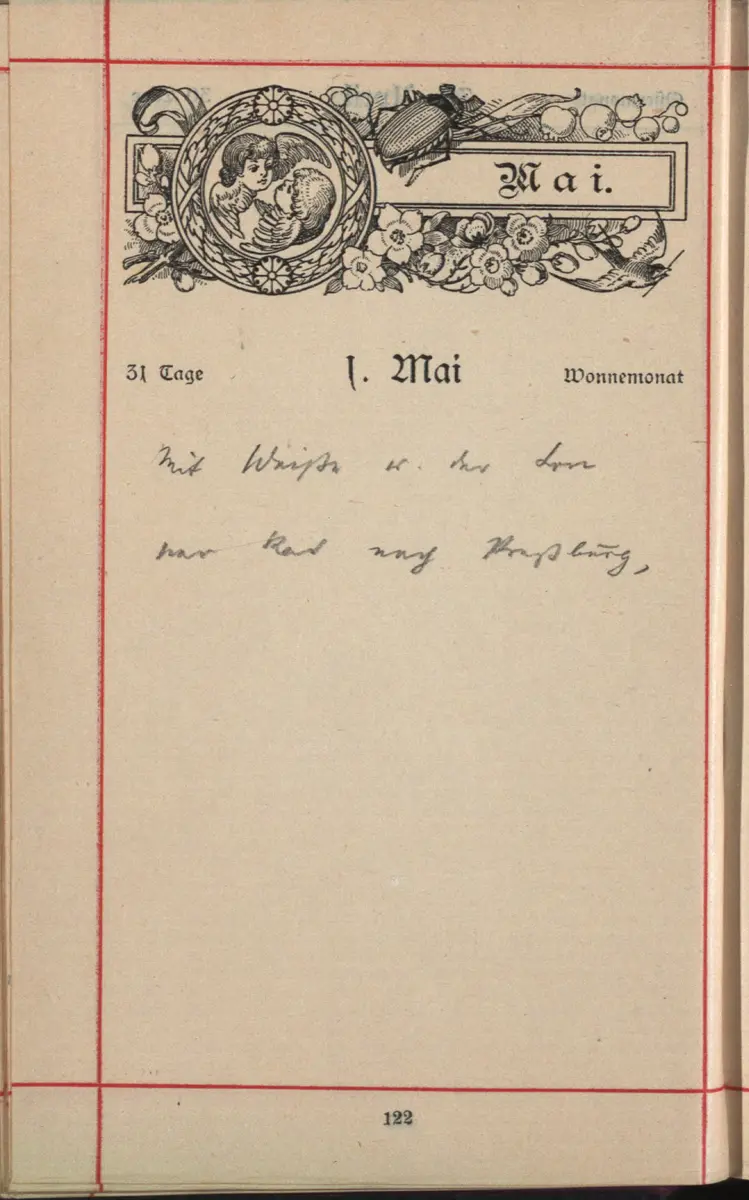 Mai.
31 Tage 1. Mai Wonnemonat
Mit Weiße u. der
per Rad nach Preßburg,
122